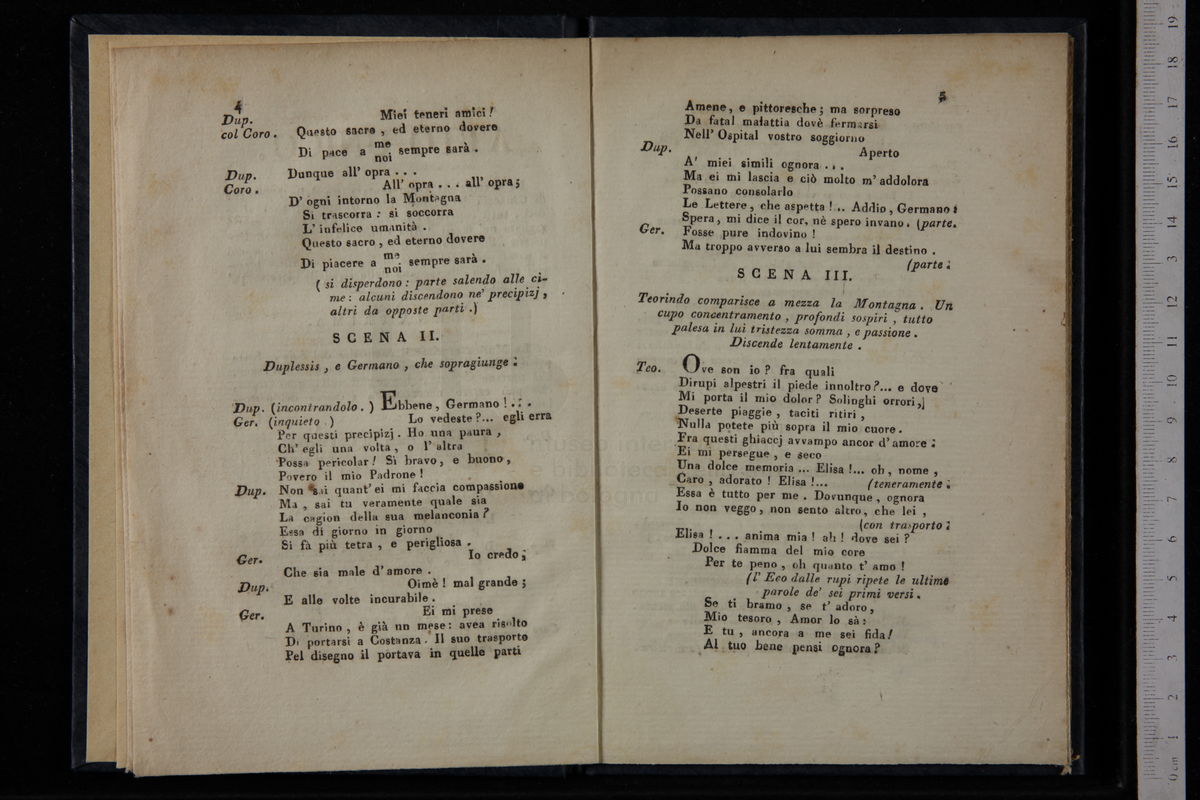 4
Dup. Miei teneri amici!
col Coro. Questo sacro, ed eterno dovere
Di pace a me noi sempre sarà.
Dup. Dunque all' opra . . .
Coro. All' opra . . . all' opra;
D' ogni intorno la Montagna
Si trascorra: si soccorra
L' infelice umanità.
Questo sacro, ed eterno dovere
Di piacere a me noi sempre sarà.
(si disperdono: parte salendo alle ci-
me: alcuni discendono ne' precipizj,
altri da opposte parti.)
SCENA II.
Duplessis, e Germano, che sopragiunge.
Dup. (incontrandolo.) Ebbene, Germano! . . .
Ger. (inquieto.) Lo vedeste?... egli erra
Per questi precipizj. Ho una paura,
Ch' egli una volta, o l' altra
Possa pericolar! Sì bravo, e buono,
Povero il mio Padrone!
Dup. Non sai quant' ei mi faccia compassione
Ma, sai tu veramente quale sia
La cagion della sua melanconia?
Essa di giorno in giorno
Si fà più tetra, e perigliosa.
Ger. Io credo,
Che sia male d' amore.
Dup. Oimè! mal grande;
E alle volte incurabile.
Ger. Ei mi prese
A Turino, è già un mese: avea risolto
Di portarsi a Costanza. Il suo trasporto
Pel disegno il portava in quelle parti
5
Amene, e pittoresche; ma sorpreso
Da fatal malattia dovè fermarsi
Nell' Ospital vostro soggiorno
Dup. Aperto
A' miei simili ognora . . .
Ma ei mi lascia e ciò molto m' addolora
Possano consolarlo
Le Lettere, che aspetta!... Addio, Germano:
Spera, mi dice il cor, nè spero invano. (parte.
Ger. Fosse pure indovino!
Ma troppo avverso a lui sembra il destino.
(parte.
SCENA III.
Teorindo comparisce a mezza la Montagna. Un
cupo concentramento, profondi sospiri, tutto
palesa in lui tristezza somma, e passione.
Discende lentamente.
Teo. Ove son io? fra quali
Dirupi alpestri il piede innoltro?... e dove
Mi porta il mio dolor? Solinghi orrori,
Deserte piaggie, taciti ritiri,
Nulla potete più sopra il mio cuore.
Fra questi ghiaccj avvampo ancor d' amore.
Ei mi persegue, e seco
Una dolce memoria ... Elisa!... oh, nome,
Caro, adorato! Elisa!... (teneramente.
Essa è tutto per me. Dovunque, ognora
Io non veggo, non sento altro, che lei,
(con trasporto.
Elisa! . . . anima mia! ah! dove sei?
Dolce fiamma del mio core
Per te peno, oh quanto t' amo!
(l' Eco dalle rupi ripete le ultime
parole de' sei primi versi.
Se ti bramo, se t' adoro,
Mio tesoro, Amor lo sà:
E tu, ancora a me sei fida!
Al tuo bene pensi ognora?